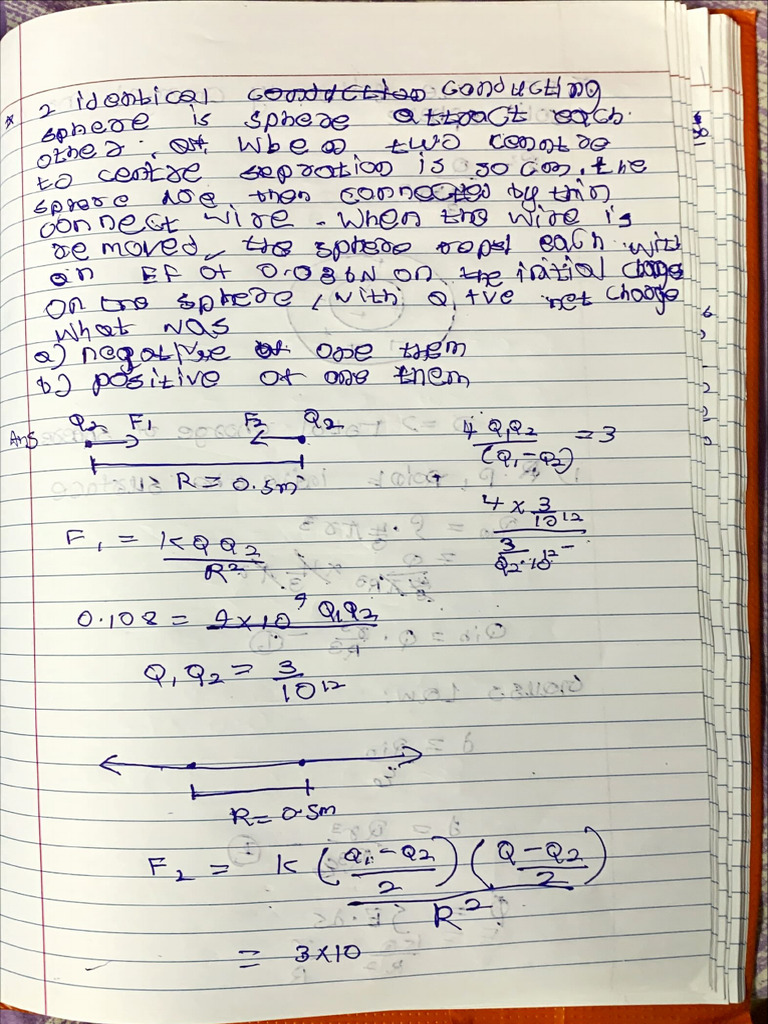 * 2 identical conducting
sphere is sphere attract each
other. at when two centre
to centre sepration is 50 cm. the
sphere are then connected by thin
connect wire. when the wire is
removed, the sphere repel each with
an EF of 0.036N on the initial charge
on the sphere, with a +ve net charge
what was
a) negative of one them
b) positive of one them
Ans Q2 F1 F2 Q2
4 Q1Q2 / (Q1-Q2) = 3
R = 0.5m
4 × 3/10^12
3 / Q2 · 10^12 -
F1 = K Q Q2 / R^2
0.108 = 9×10^9 Q1Q2
Q1 Q2 = 3 / 10^12
R = 0.5m
F2 = K ((Q1-Q2)/2) ((Q-Q2)/2) / R^2
= 3×10